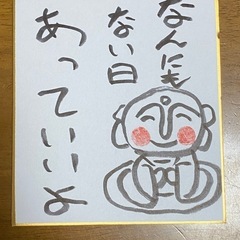 なんにも
ない日
あっていいよ